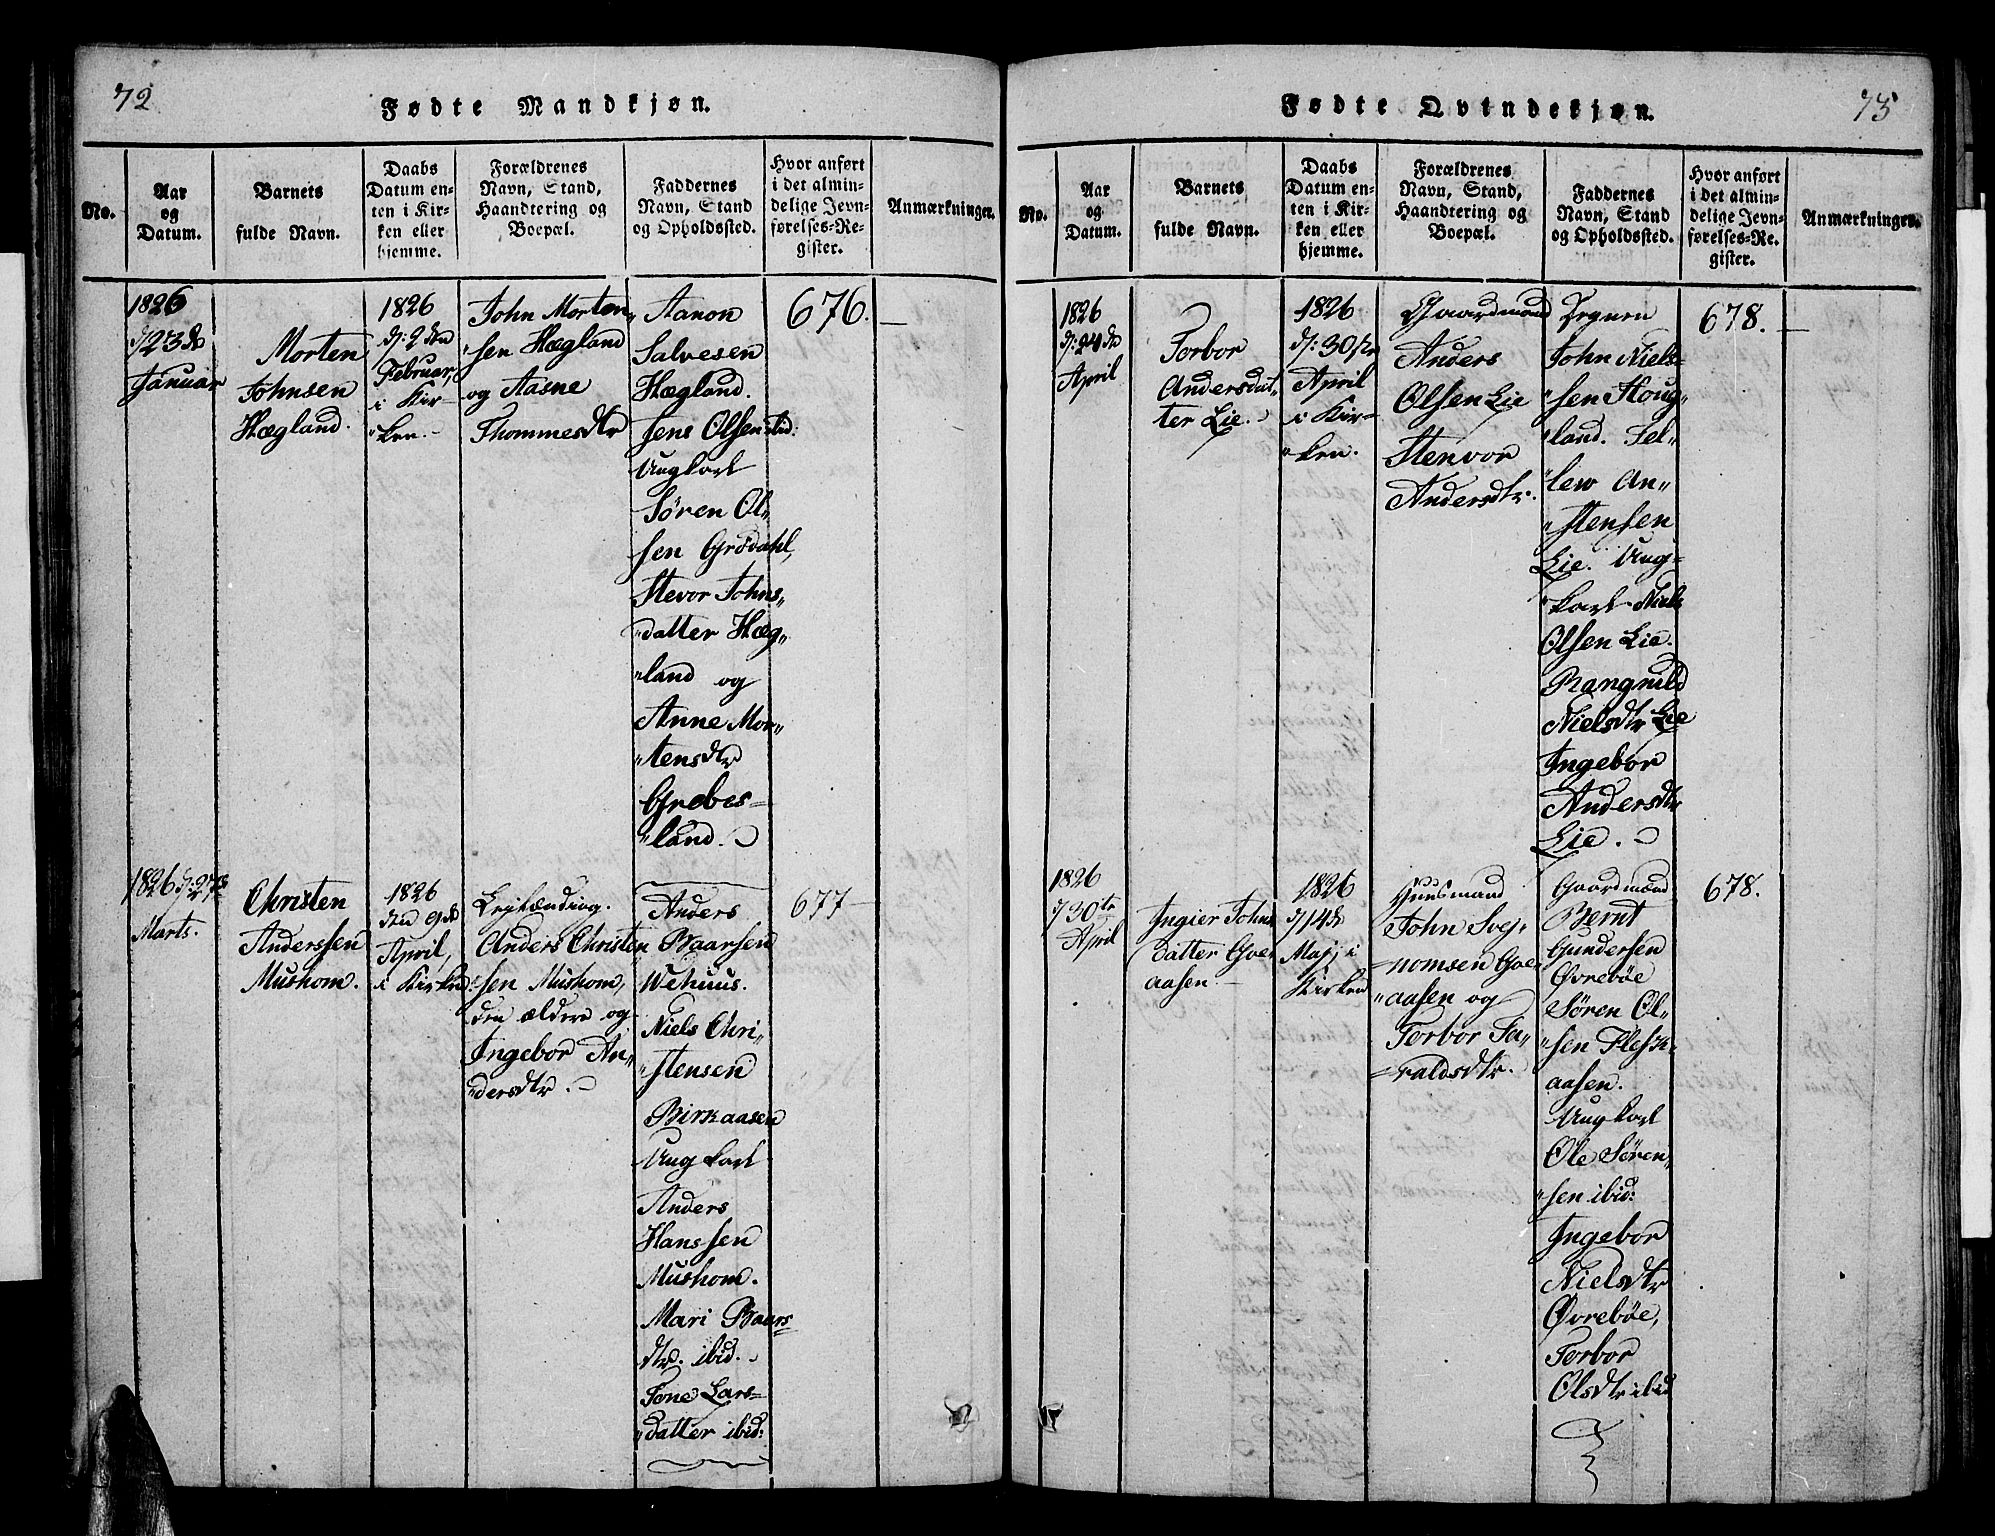 72
Fødte Mandkjøn.
No.
Aar
og
Datum.
Barnets
fulde Navn.
Daabs
Datum en-
ten i Kir-
ken eller
hjemme.
Forældrenes
Navn, Stand,
Haandtering og
Boepæl.
Faddernes
Navn, Stand
og Opholdssted.
Hvor anført
i det almin-
delige Jevn-
førelses-Re-
gister.
Anmærkninger.
1826
d/23de
Januar
Morten
Johnsen
Hægland.
1826
d/: 2den
Februar,
i Kir-
"ken.-
John Morten"
"sen Hægland
og Aasne
Thommesdtr
Aanon
Salvesen
Hægland.
Jens Olsen ibid:
Ungkarl
Søren Ol"
sen Grødahl,
Stevor Johns"
"datter Hæg"
"land og
Anne Mor"
"tensdtr
Grebes-
"land.
676.
1826 d/: 27de
Marts.
Christen
Anderssen
Mushom.
1826
den 9de
April,
i Kirken.
Lejlænding.
Anders Christen
"sen Mushom,
den ældere og
Ingebor An"
"dersdtr.
Anders
Baarsen
Wehuus.
Niels Chri"
"stensen
Birkaasen
Ungkarl
Anders
Hanssen
Mushom.
Mari Baars
dtr. ibid.
Tone Lars-
"datter ibid:
677
75
Fødte Qvindekjøn.
No.
Aar
og
Datum.
Barnets
fulde Navn.
Daabs
Datum en-
ten i Kir-
ken eller
hjemme.
Forældrenes
Navn, Stand,
Haandtering og
Boepæl.
Faddernes
Navn, Stand
og Opholdssted.
Hvor anført
i det almin-
delige Jevn-
førelses-Re-
gister.
Anmærkninger.
1826
d/: 24de
April
Torbor
Andersdat"
ter Lie.
1826
d/: 30te
April
i Kir-
"ken.
Gaardmand
Anders
Olsen Lie
Stenvor
Andersdtr.
Degnen
John Niels-
"sen Houg"
"land. Tel"
"lew An"
"stensen
Lie. Ung-
"karl Niels
Olsen Lie.
Rangnild
Nielsdtr Lie
Ingebor
Andersdtr
Lie.
678.
1826
d/30te
April
Ingier Johns
datter Goe"
aasen
1826
d/14de
Maj i
Kirken
Huusmand
John Svej"
"nomsen Goe"
"aasen og
Torbor Ta"
"raldsdtr.
Gaardmænd
Bernt
Gundersen
Øvrebøe
Søren Ol"
"sen Flesk"
aasen.
Ungkarl
Ole Søren"
"sen ibid:
Ingebor
Nielsdtr
Øvrebøe,
Torbor
Olsdtr ibid
678.